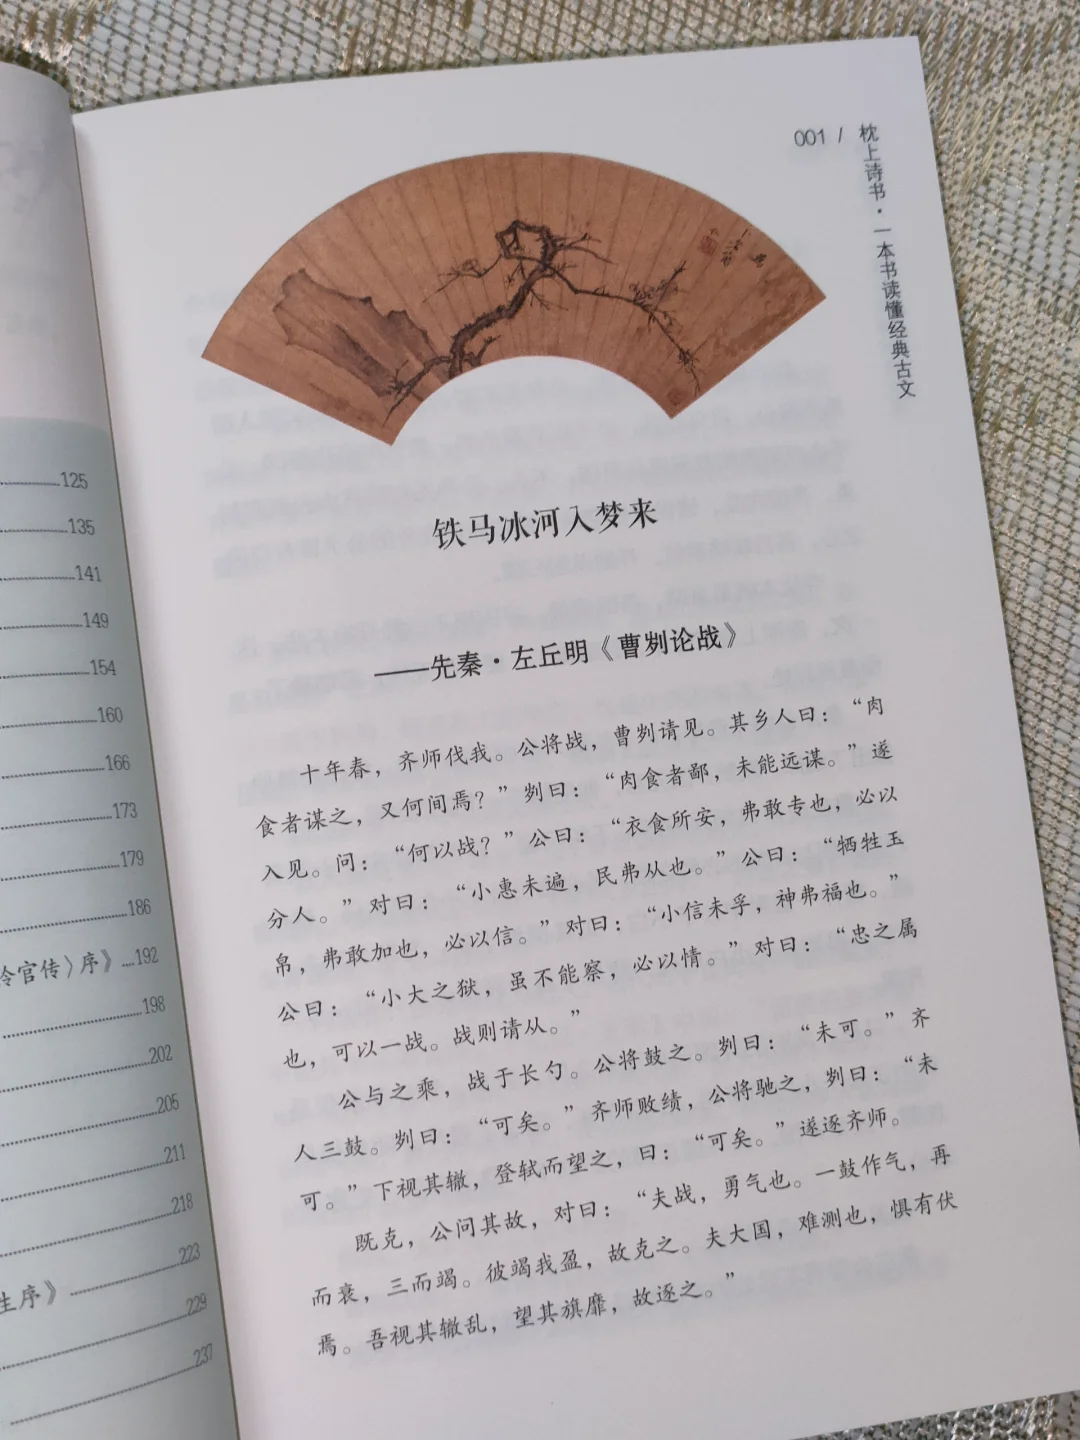 125
135
141
149
154
160
166
173
179
186
伶官传〉序》 192
198
202
205
211
218
223
生序》
229
237
001 /
枕上诗书·一本书读懂经典古文
铁马冰河入梦来
——先秦·左丘明《曹刿论战》
十年春，齐师伐我。公将战，曹刿请见。其乡人曰：“肉
食者谋之，又何间焉？”刿曰：“肉食者鄙，未能远谋。”遂
入见。问：“何以战？”公曰：“衣食所安，弗敢专也，必以
分人。”对曰：“小惠未遍，民弗从也。”公曰：“牺牲玉
帛，弗敢加也，必以信。”对曰：“小信未孚，神弗福也。”
公曰：“小大之狱，虽不能察，必以情。”对曰：“忠之属
也，可以一战。战则请从。”
公与之乘，战于长勺。公将鼓之。刿曰：“未可。”齐
人三鼓。刿曰：“可矣。”齐师败绩，公将驰之，刿曰：“未
可。”下视其辙，登轼而望之，曰：“可矣。”遂逐齐师。
既克，公问其故，对曰：“夫战，勇气也。一鼓作气，再
而衰，三而竭。彼竭我盈，故克之。夫大国，难测也，惧有伏
焉。吾视其辙乱，望其旗靡，故逐之。”